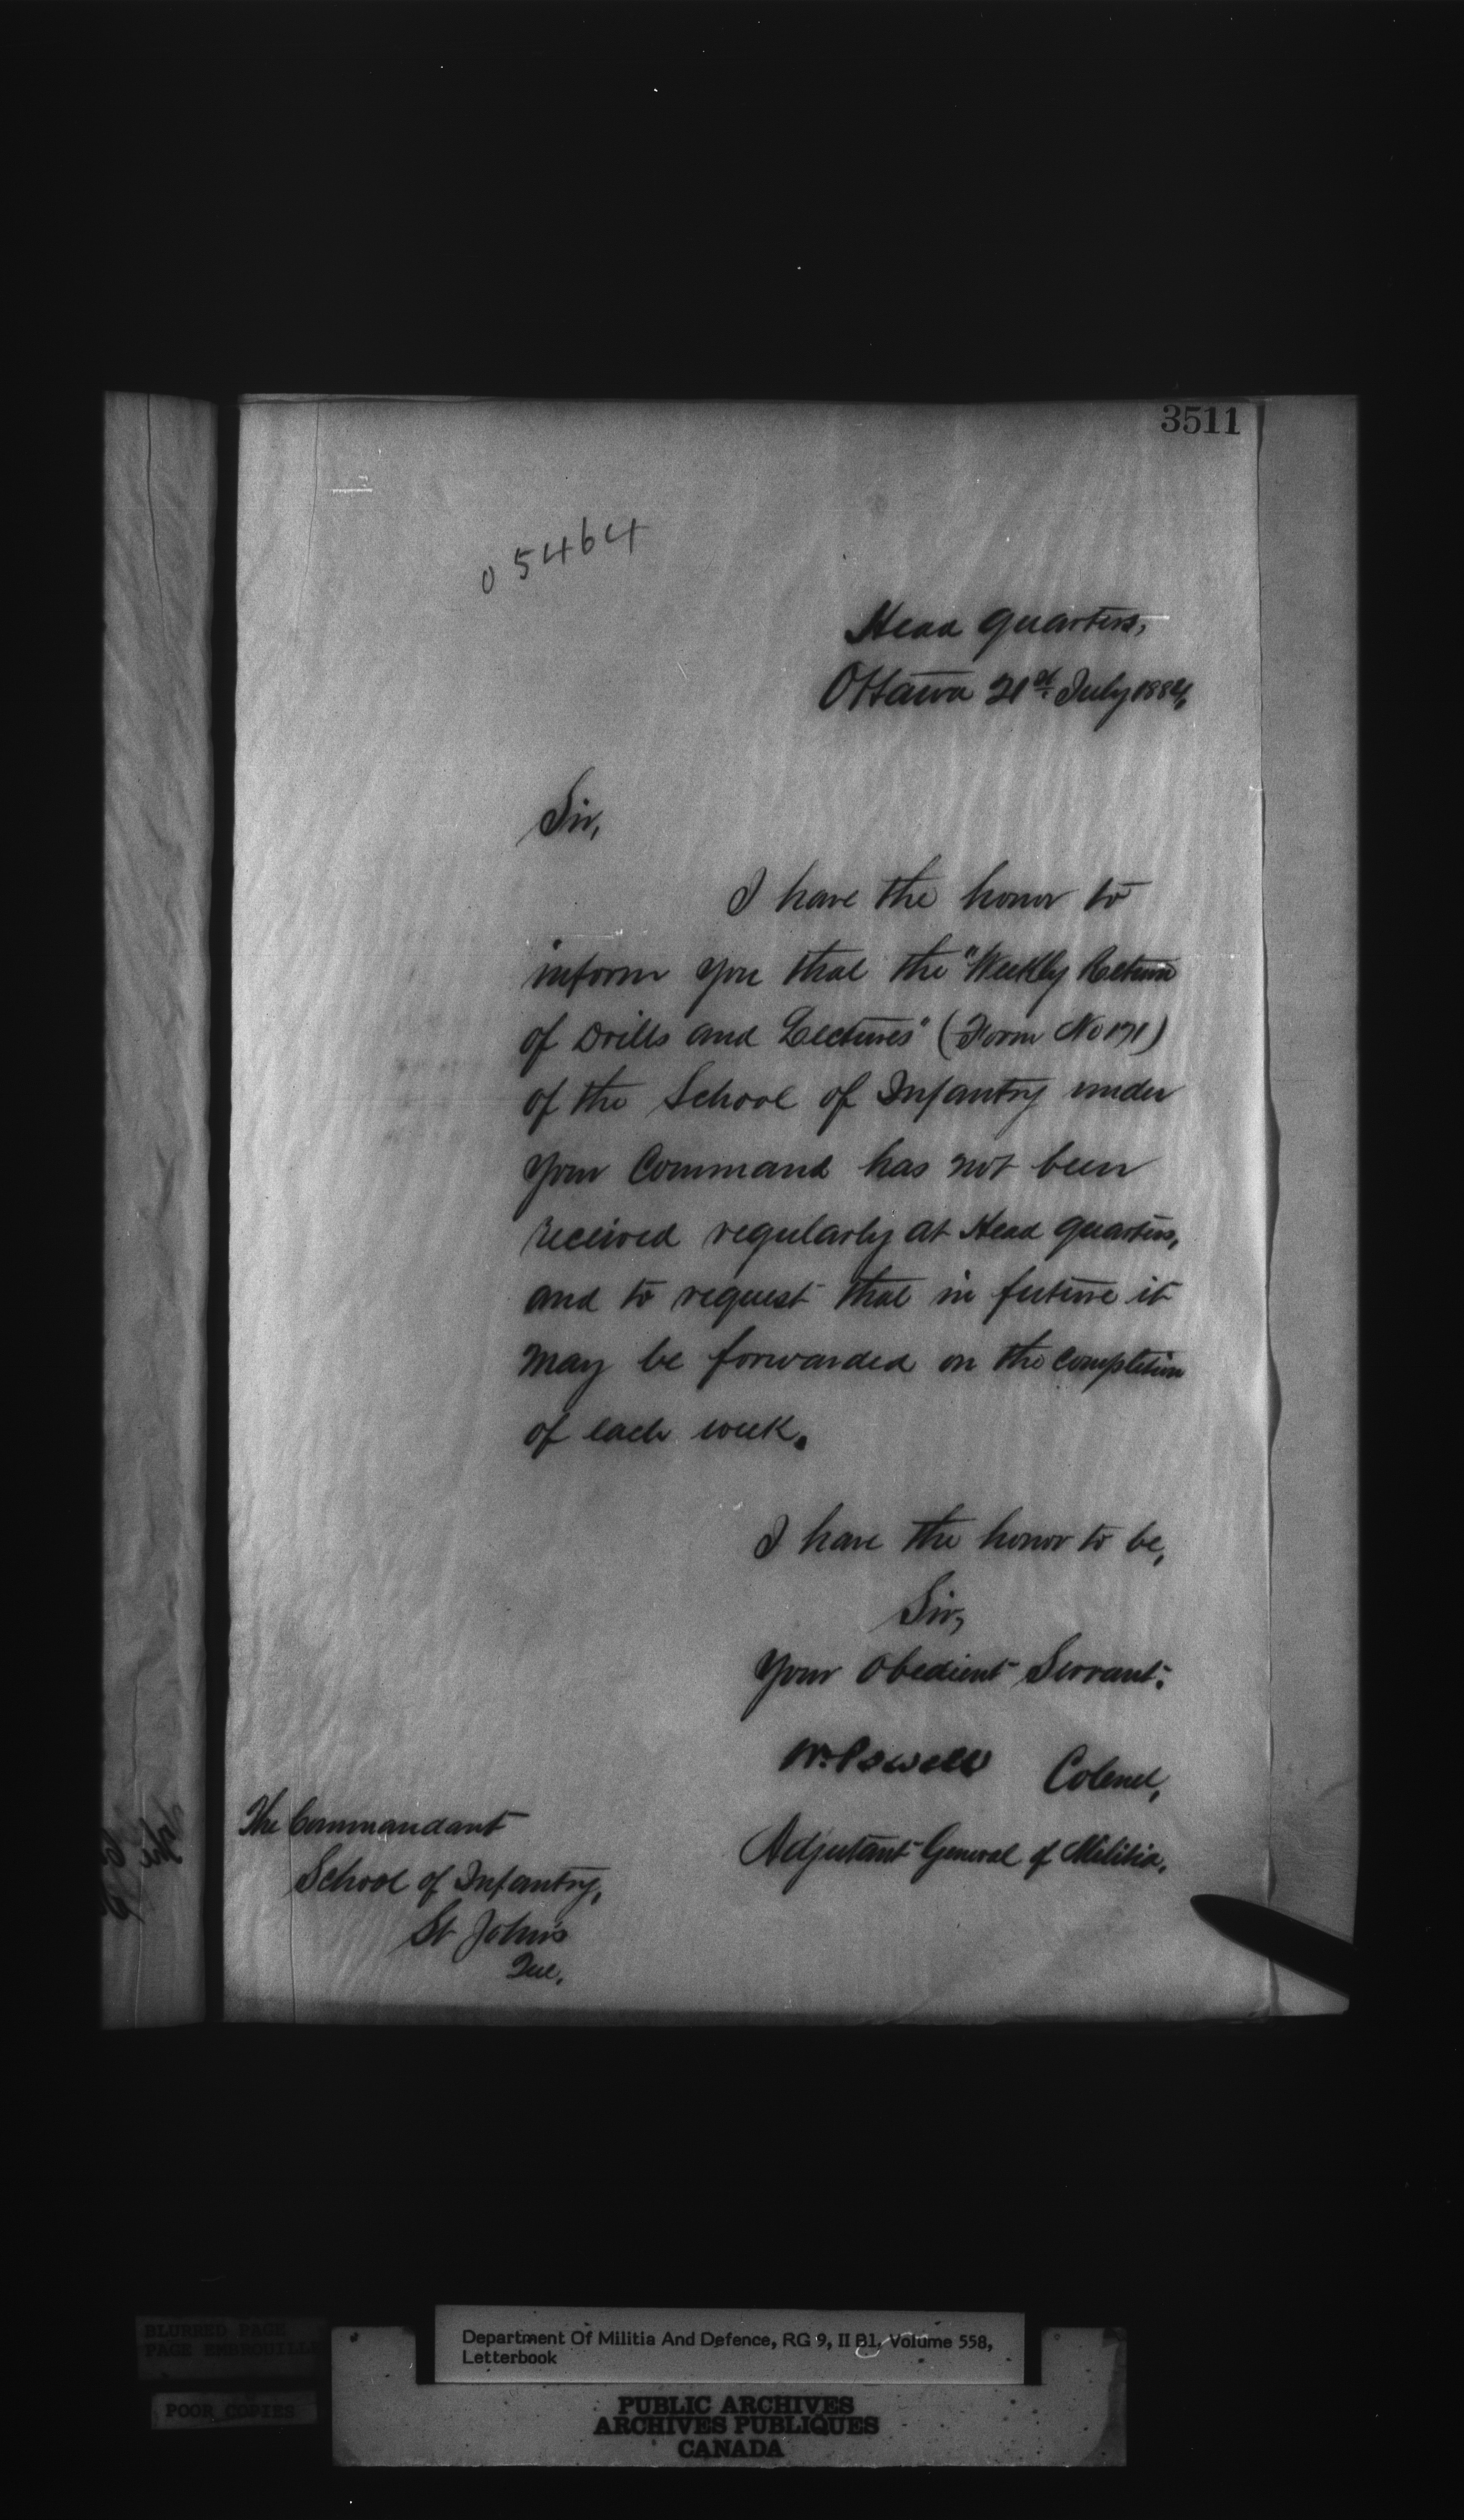 3511
05464
Head Quarters,
Ottawa 21st July 1884,
Sir,
I have the honor to
inform you that the "Weekly Return
of Drills and Lectures" (Form No 171)
of the School of Infantry under
your Command has not been
received regularly at Head Quarters,
and to request that in future it
may be forwarded on the completion
of each week.
I have the honor to be,
Sir,
Your Obedient Servant.
W. Powell Colonel,
Adjutant General of Militia.
The Commandant
School of Infantry,
St Johns
Que.
BLURRED PAGE
PAGE EMBROUILLE
POOR COPIES
Department Of Militia And Defence, RG 9, II B1, Volume 558,
Letterbook
PUBLIC ARCHIVES
ARCHIVES PUBLIQUES
CANADA